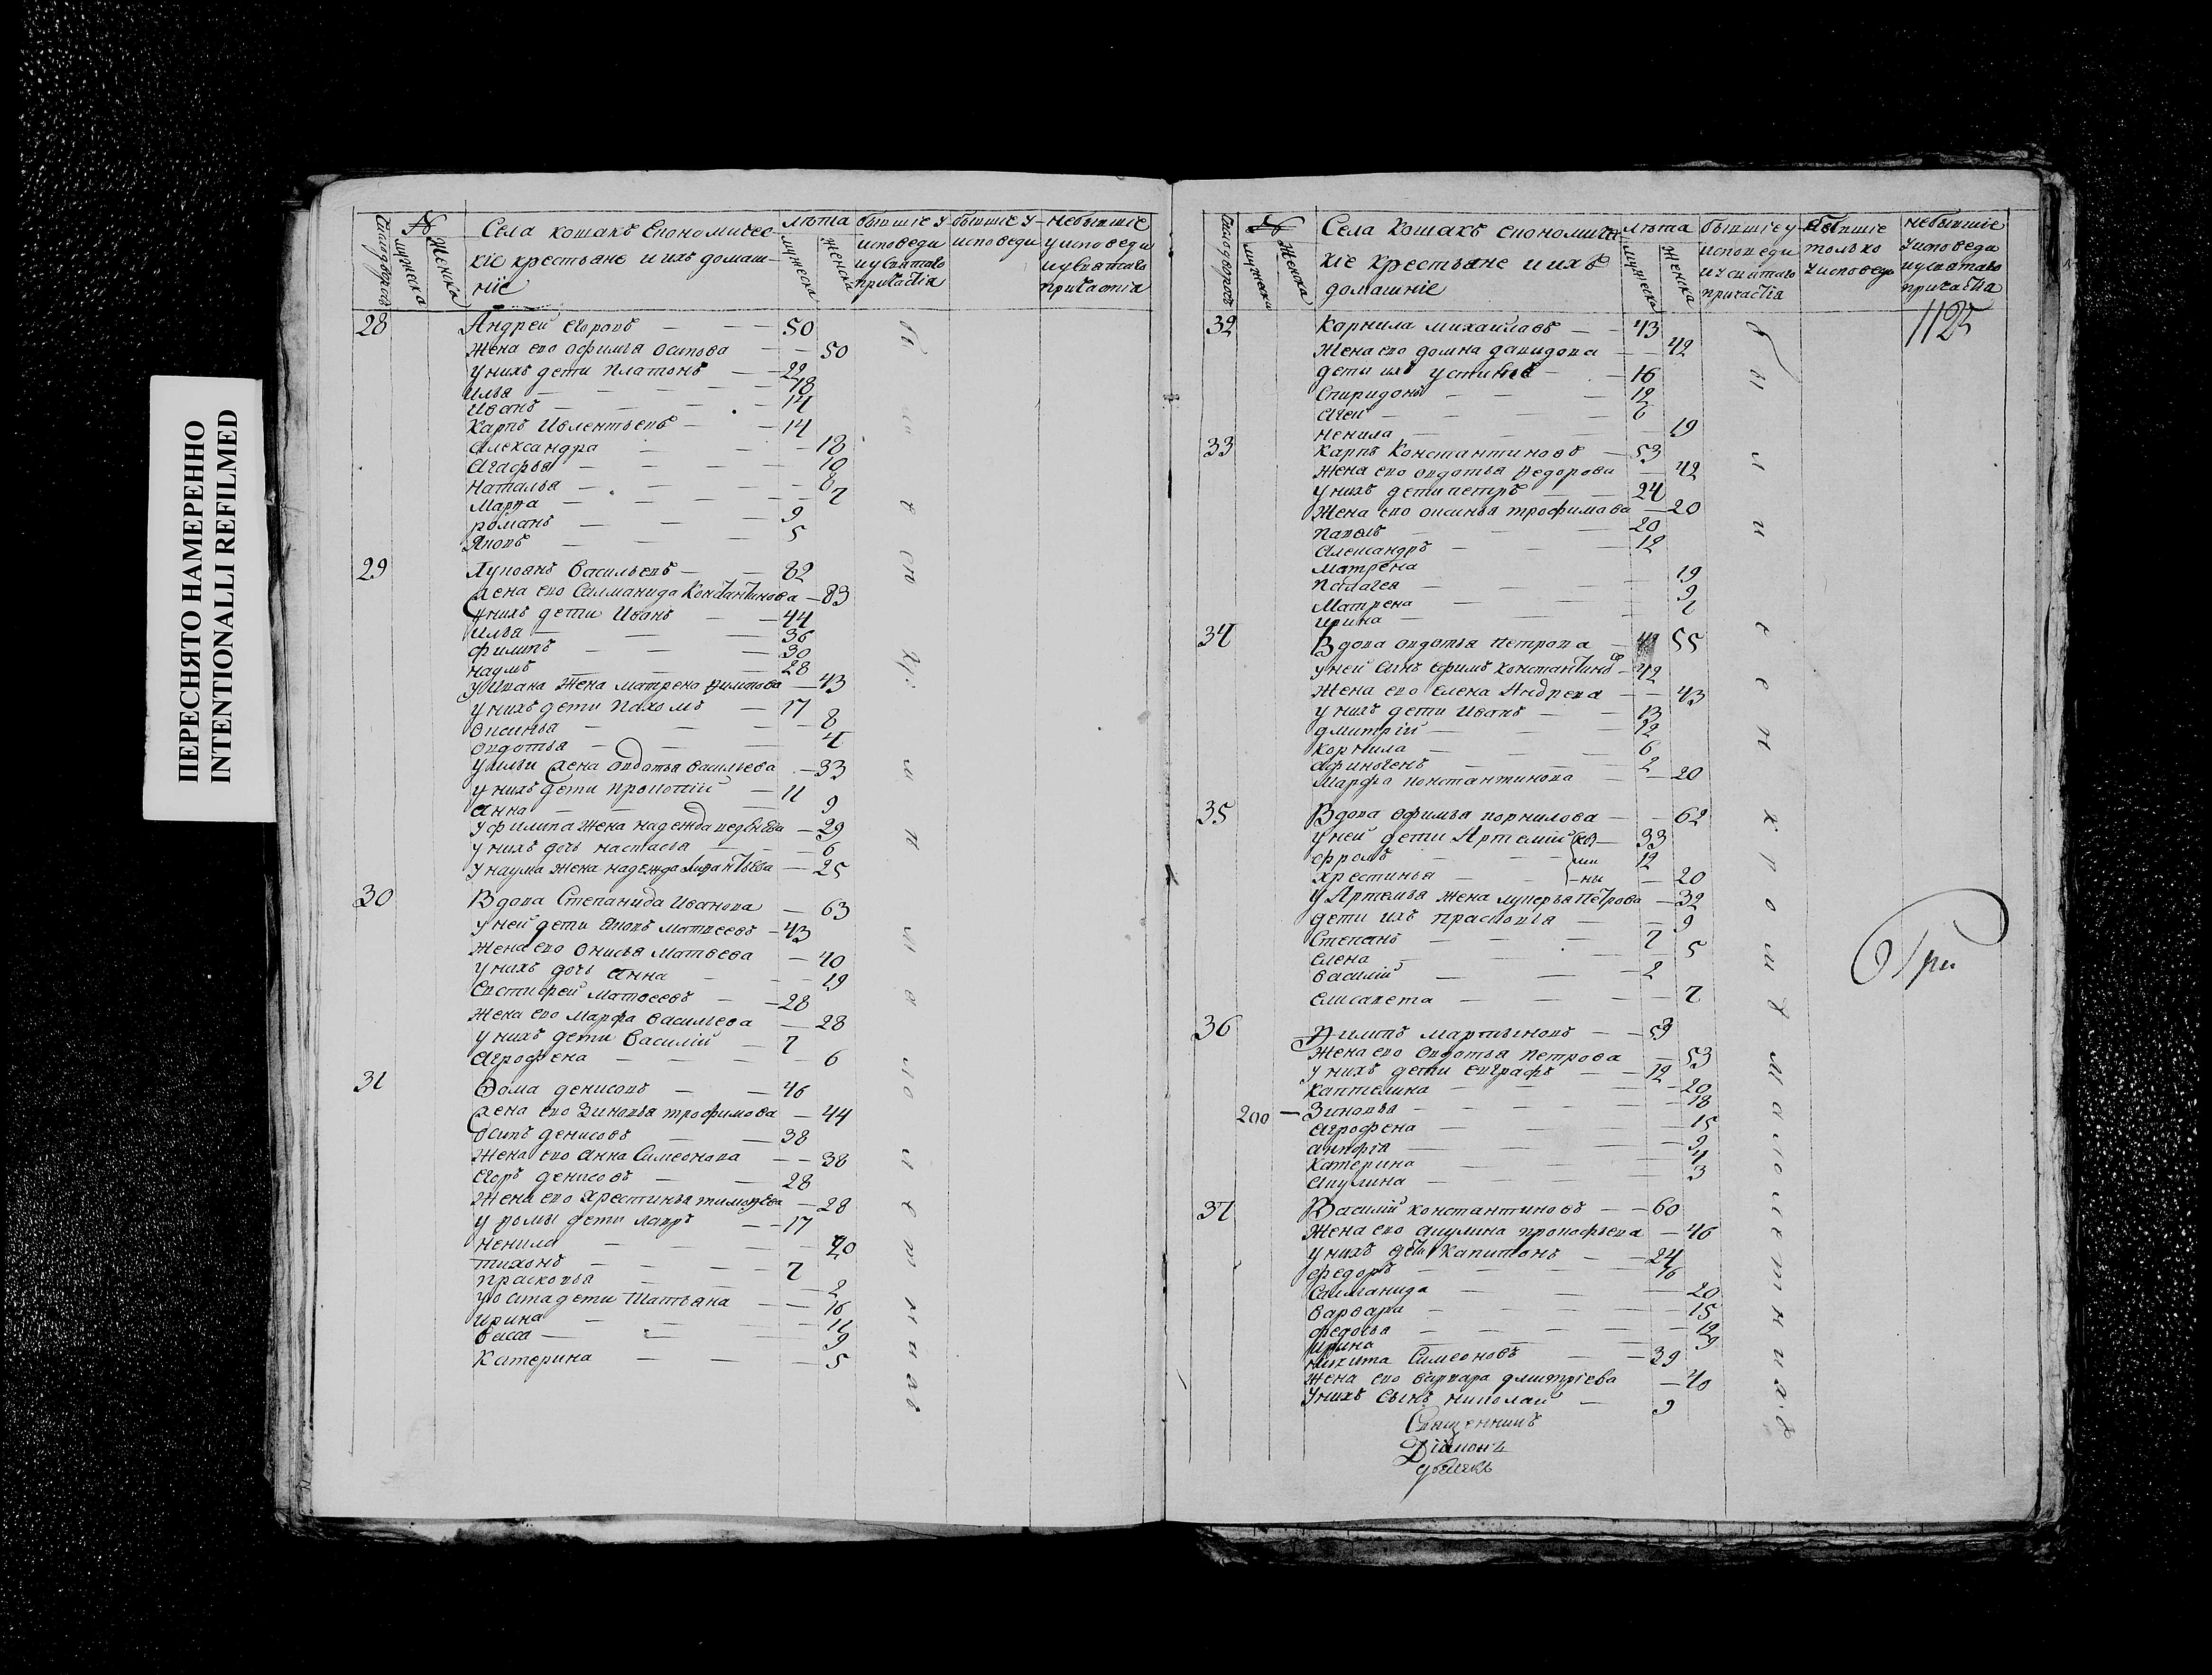 ПЕРЕСНЯТО НАМЕРЕННО
INTENTIONALLI REFILMED
Число дворовъ
№
мужеска
Женска
Села кошакъ Економичес-
кіе крестьяне и ихъ домаш-
ніе
лѣта
мужеска
женска
бывшіе у
исповеди
и у святаго
причастія
бывшіе у
исповеди
небывшіе
у исповеди
и у святаго
причастія
28 Андрей егоровъ — 50
Жена ево офимья осипова — 50
у нихъ дети Платонъ — 22
Илья — 18
Иванъ — 14
Карпъ Ивлентьевъ — 14
Александра — 18
Агафья — 10
Наталья — 8
Марѳа — 7
романъ — 9
Яковъ — 5
29 Лукоянъ Васильевъ — 82
Жена ево Салманида Константинова — 83
у нихъ дети Иванъ — 44
Илья — 36
филипъ — 30
наумъ — 28
у Ивана Жена Матрена — 43
у нихъ дети Пахомъ — 17
Оксинья — 8
овдотья — 4
у Ильи Жена Овдотья Васильева — 33
у нихъ дети Прокопій — 11
Анна — 9
у филипа Жена надежда — 29
у нихъ дочь настасья — 6
У наума Жена надежда — 25
30 Вдова Степанида Иванова — 63
у ней дети Яковъ Матвеевъ — 43
Жена ево Онисья Матвева — 40
у нихъ дочь Анна — 19
Евстифей Матвеевъ — 28
Жена ево Марфа Васильева — 28
у нихъ дети Василій — 7
Агрофена — 6
31 Ѳома денисовъ — 46
Жена ево Зиновья трофимова — 44
Осипъ денисовъ — 38
Жена ево Анна Симеонова — 38
Егоръ денисовъ — 28
Жена ево Хрестинья тимофѣева — 28
у ѳомы дети лавръ — 17
Ненила — 20
тихонъ — 7
Прасковья — 2
у осипа дети Татьяна — 16
Ирина — 11
Васса — 9
Катерина — 5
Число дворовъ
№
мужеска
Женска
Села Кошакъ економичес
кіе Крестьяне и ихъ
домашніе
лѣта
мужеска
Женска
бывшіе у
исповеди
и у святаго
причастія
бывшіе
только
у исповеди
небывшіе
у исповеди
и у святаго
причастія
1125
32 Карнила михайловъ — 43
Жена ево домна давидова — 42
дети ихъ устинъ — 16
Спиридонъ — 12
Агей — 6
Ненила — 19
33 Карпъ Константиновъ — 53
Жена ево овдотья Ѳедорова — 42
у нихъ дети петръ — 24
Жена ево оксинья трофимова — 20
Павелъ — 20
Александръ — 12
Матрена — 19
Пелагея — 9
Матрена — 7
Ирина
34 Вдова овдотья Петрова — 55
у ней сынъ ефимъ константиновъ — 42
Жена ево Елена Андрева — 43
у нихъ дети Иванъ — 13
дмитрій — 12
Корнила — 6
афиногенъ — 2
Марфа константинова — 20
35 Вдова офимья корнилова — 62
у ней дети Артемій — 33
фролъ — 12
Хрестинья — 20
У Артемья Жена Лукерья Петрова — 32
дети ихъ прасковья — 9
Степанъ — 7
Елена — 5
Василій — 2
Елисавета — 7
36 Филипъ Мартыновъ — 53
Жена ево Овдотья Петрова — 53
у нихъ дети евграфъ — 12
Каптелина — 20
200 — Зиновья — 18
Агрофена — 15
Катерина — 4
Акулина — 3
37 Василій константиновъ — 60
Жена ево акулина прокофьева — 46
у нихъ дети Капитонъ — 24
федоръ — 16
Салманида — 20
Варвара — 15
федосья — 12
Ирина — 9
никита Симеоновъ — 39
Жена ево Варвара дмитріева — 40
У нихъ Сынъ николай — 9
Священникъ
Діаконъ